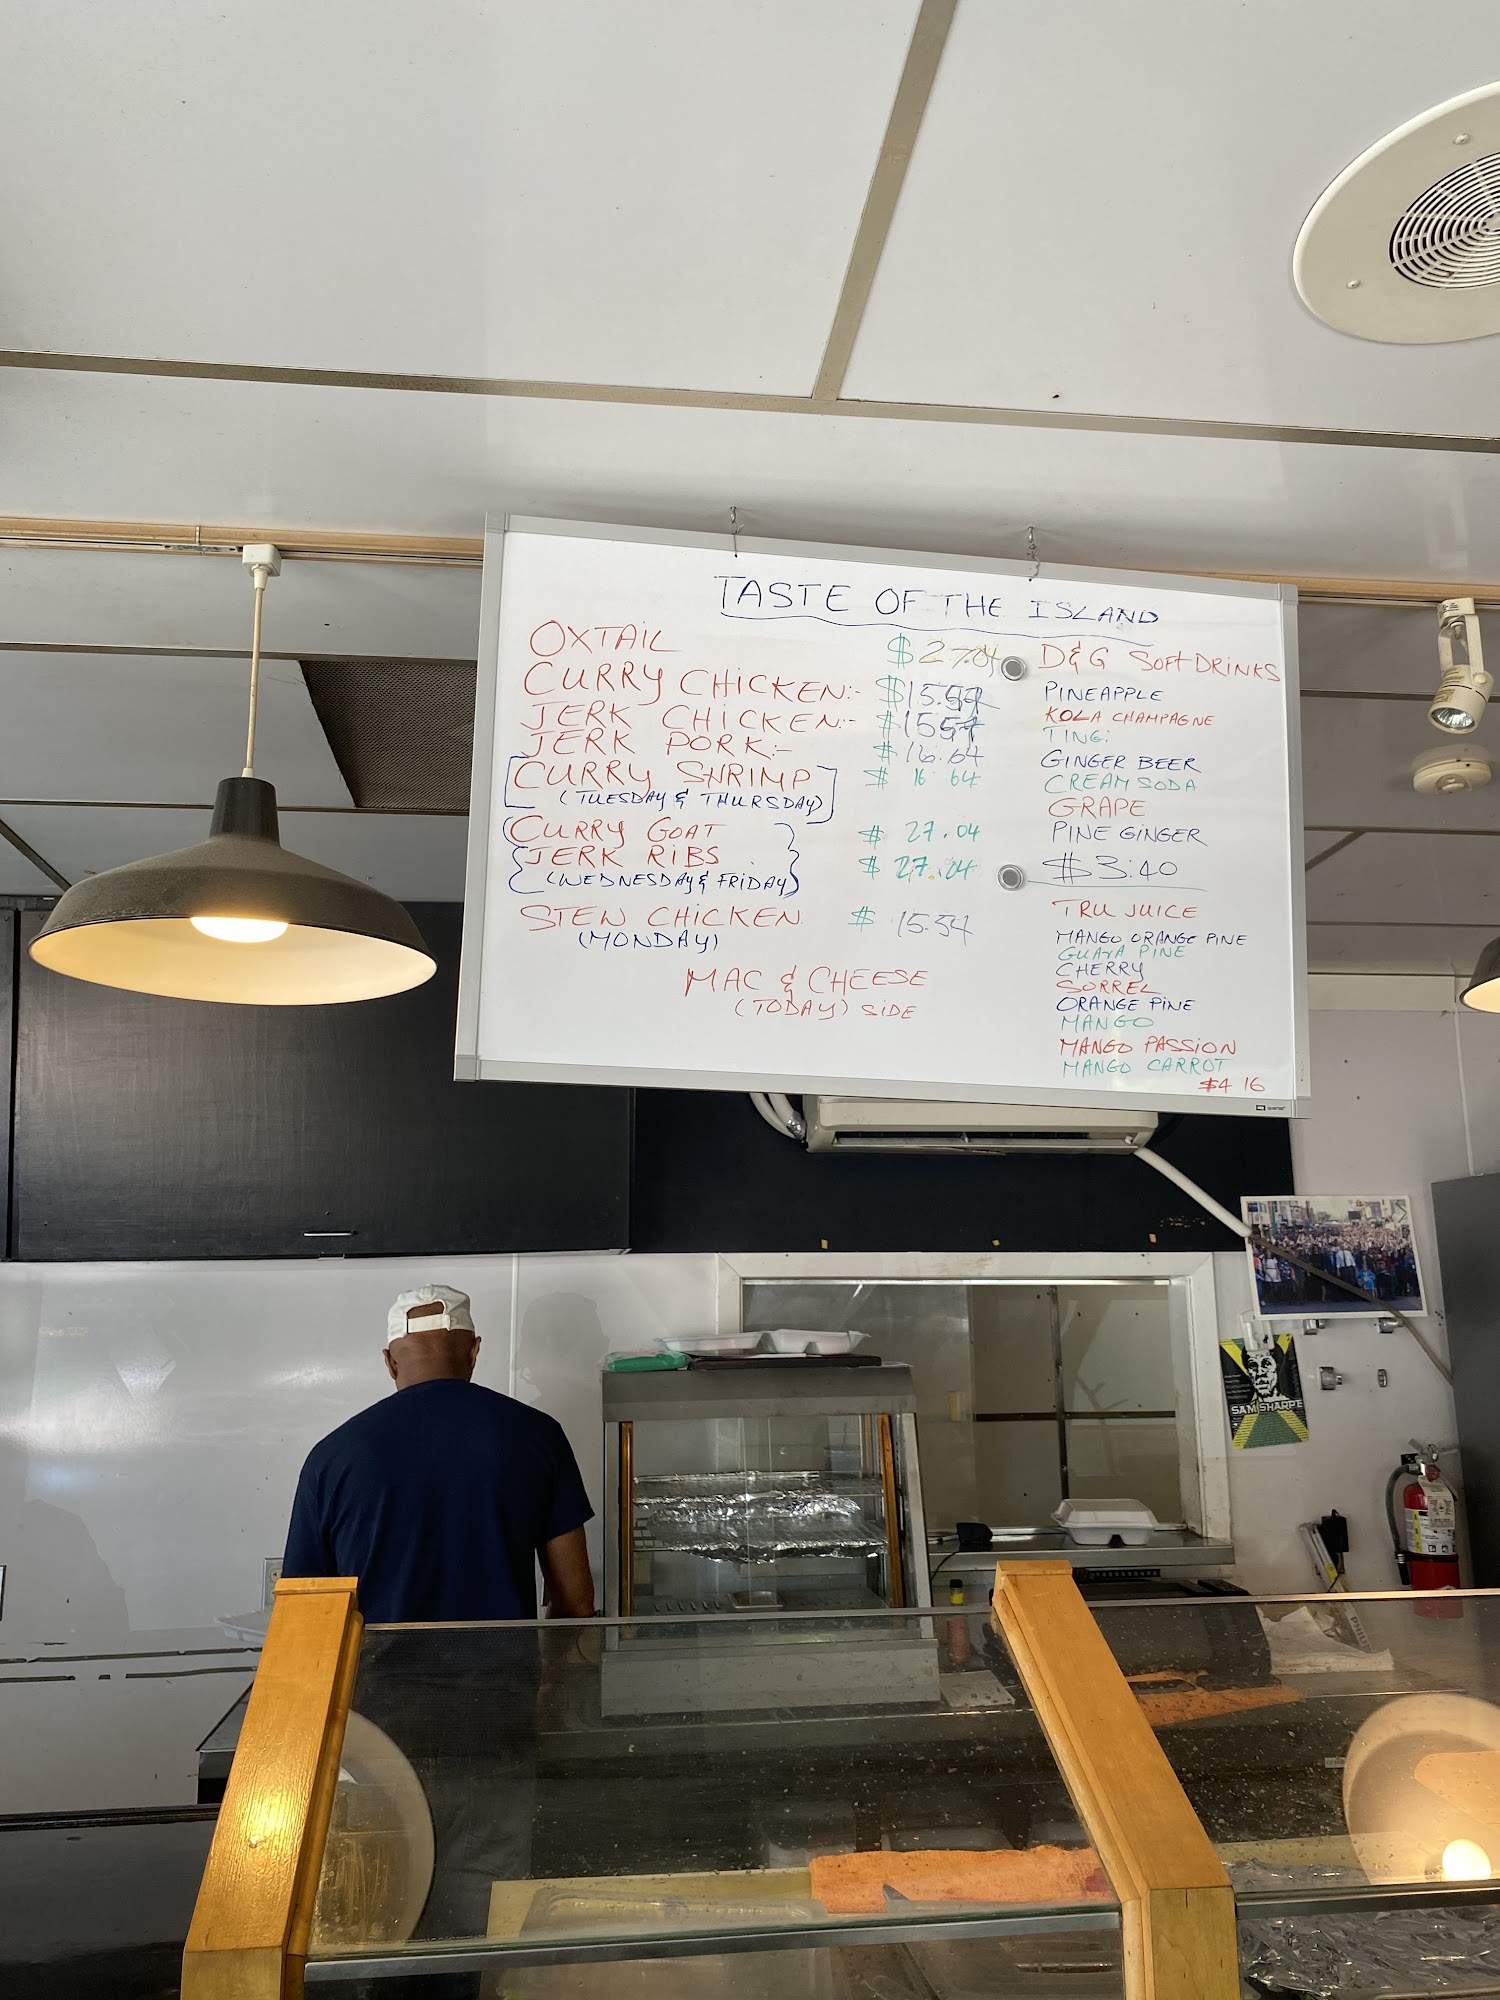 TASTE OF THE ISLAND
OXTAIL $27.04
CURRY CHICKEN:- $15.54
JERK CHICKEN:- $15.54
JERK PORK:- $16.64
CURRY SHRIMP $16.64
(TUESDAY & THURSDAY)
CURRY GOAT $27.04
JERK RIBS $27.04
(WEDNESDAY & FRIDAY)
STEW CHICKEN $15.54
(MONDAY)
MAC & CHEESE
(TODAY) SIDE
D&G SOFT DRINKS
PINEAPPLE
KOLA CHAMPAGNE
TING:
GINGER BEER
CREAM SODA
GRAPE
PINE GINGER
$3.40
TRU JUICE
MANGO ORANGE PINE
GUAVA PINE
CHERRY
SORREL
ORANGE PINE
MANGO
MANGO PASSION
MANGO CARROT
$4 16
SAM SHARPE